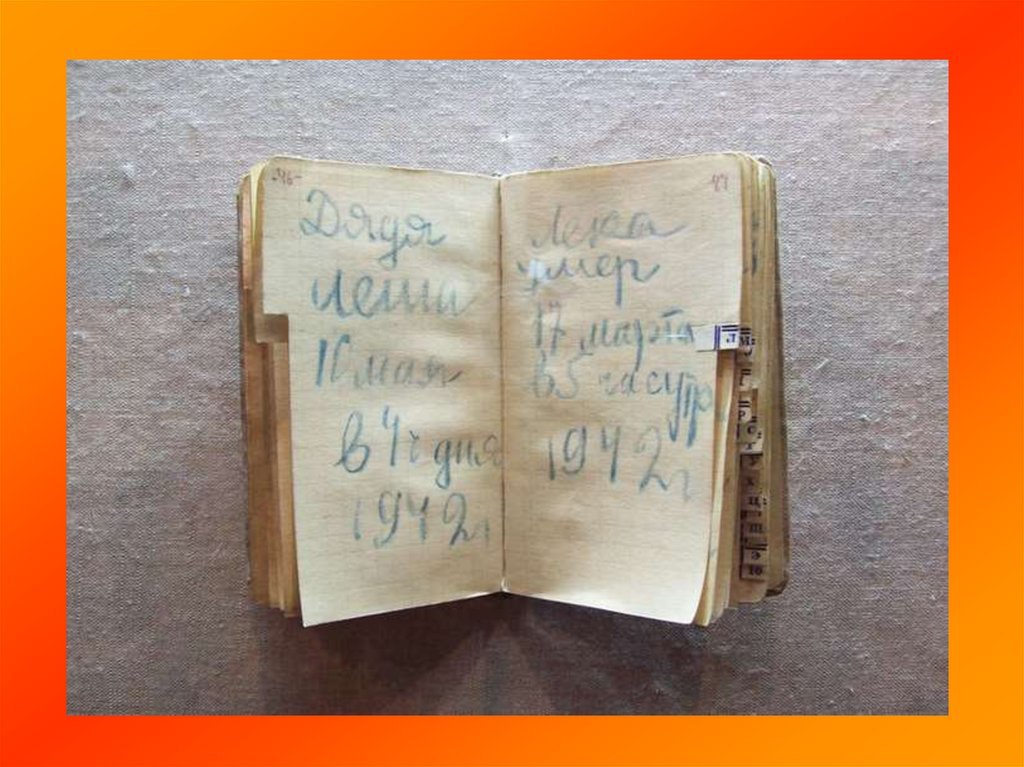 Дядя
Леша
10 мая
в 4ч дня
1942г
Лека
умер
17 марта
в 5 час утр
1942г
Л
М
Р
С
Т
У
Х
Ц
Ш
Э
Ю